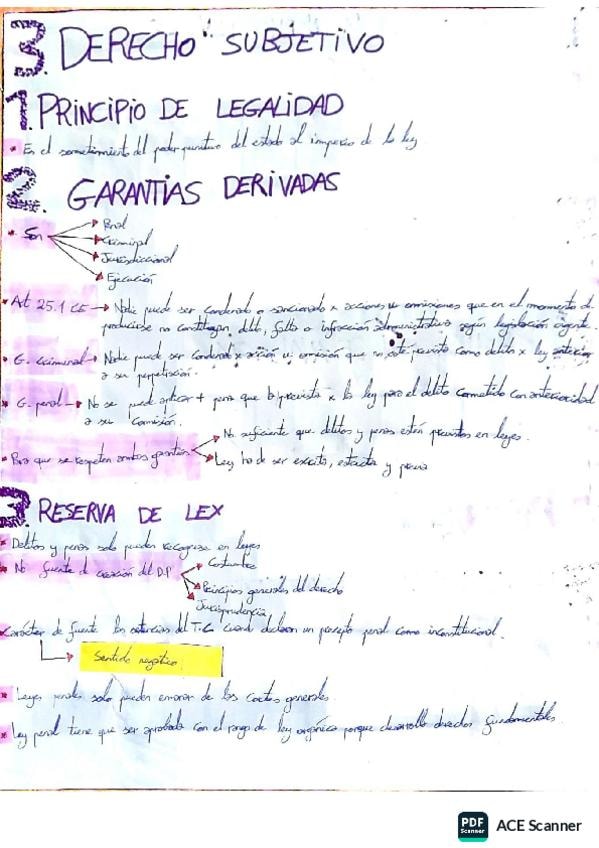 3. DERECHO SUBJETIVO
1. PRINCIPIO DE LEGALIDAD
• Es el sometimiento del poder punitivo del estado al imperio de la ley
2. GARANTIAS DERIVADAS
• Son
Penal
Criminal
Jurisdiccional
Ejecución
• Art 25.1 CE → Nadie puede ser condenado o sancionado x acciones u omisiones que en el momento d
producirse no constituyan delito, falta o infracción administrativa según legislación vigente.
• G. criminal → Nadie puede ser condenado x acción u omisión que no esté prevista como delito x ley anterior
a su perpetración.
• G. penal → No se puede aplicar + pena que la prevista x la ley para el delito cometido con anterioridad
a su comisión.
• Para que se respeten ambas garantías
No suficiente que delitos y penas estén previstos en leyes.
Ley ha de ser escrita, estricta y previa
3. RESERVA DE LEX
• Delitos y penas solo pueden recogerse en leyes
• No fuente de creación del DP
Costumbre
Principios generales del derecho
Jurisprudencia
Carácter de fuente las sentencias del T.C. cuando declaran un precepto penal como inconstitucional.
Sentido negativo
• Leyes penales solo pueden emanar de las Cortes generales.
• Ley penal tiene que ser aprobada con el rango de ley orgánica porque desarrolla derechos fundamentales.
PDF
Scanner
ACE Scanner